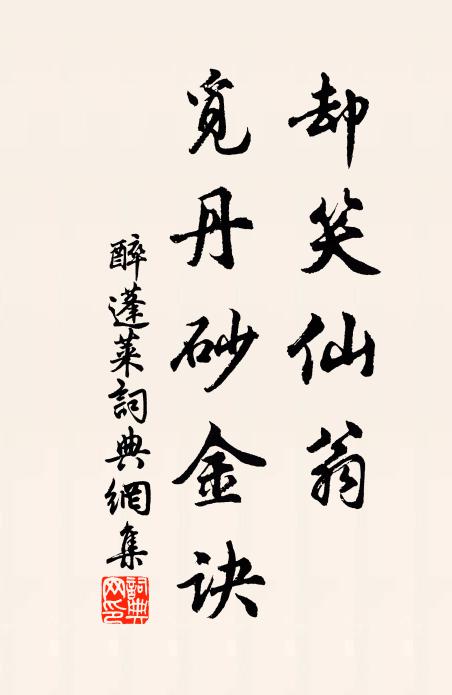 却笑仙翁
覓丹砂金訣
醉蓬萊詞典網集
詞典网印